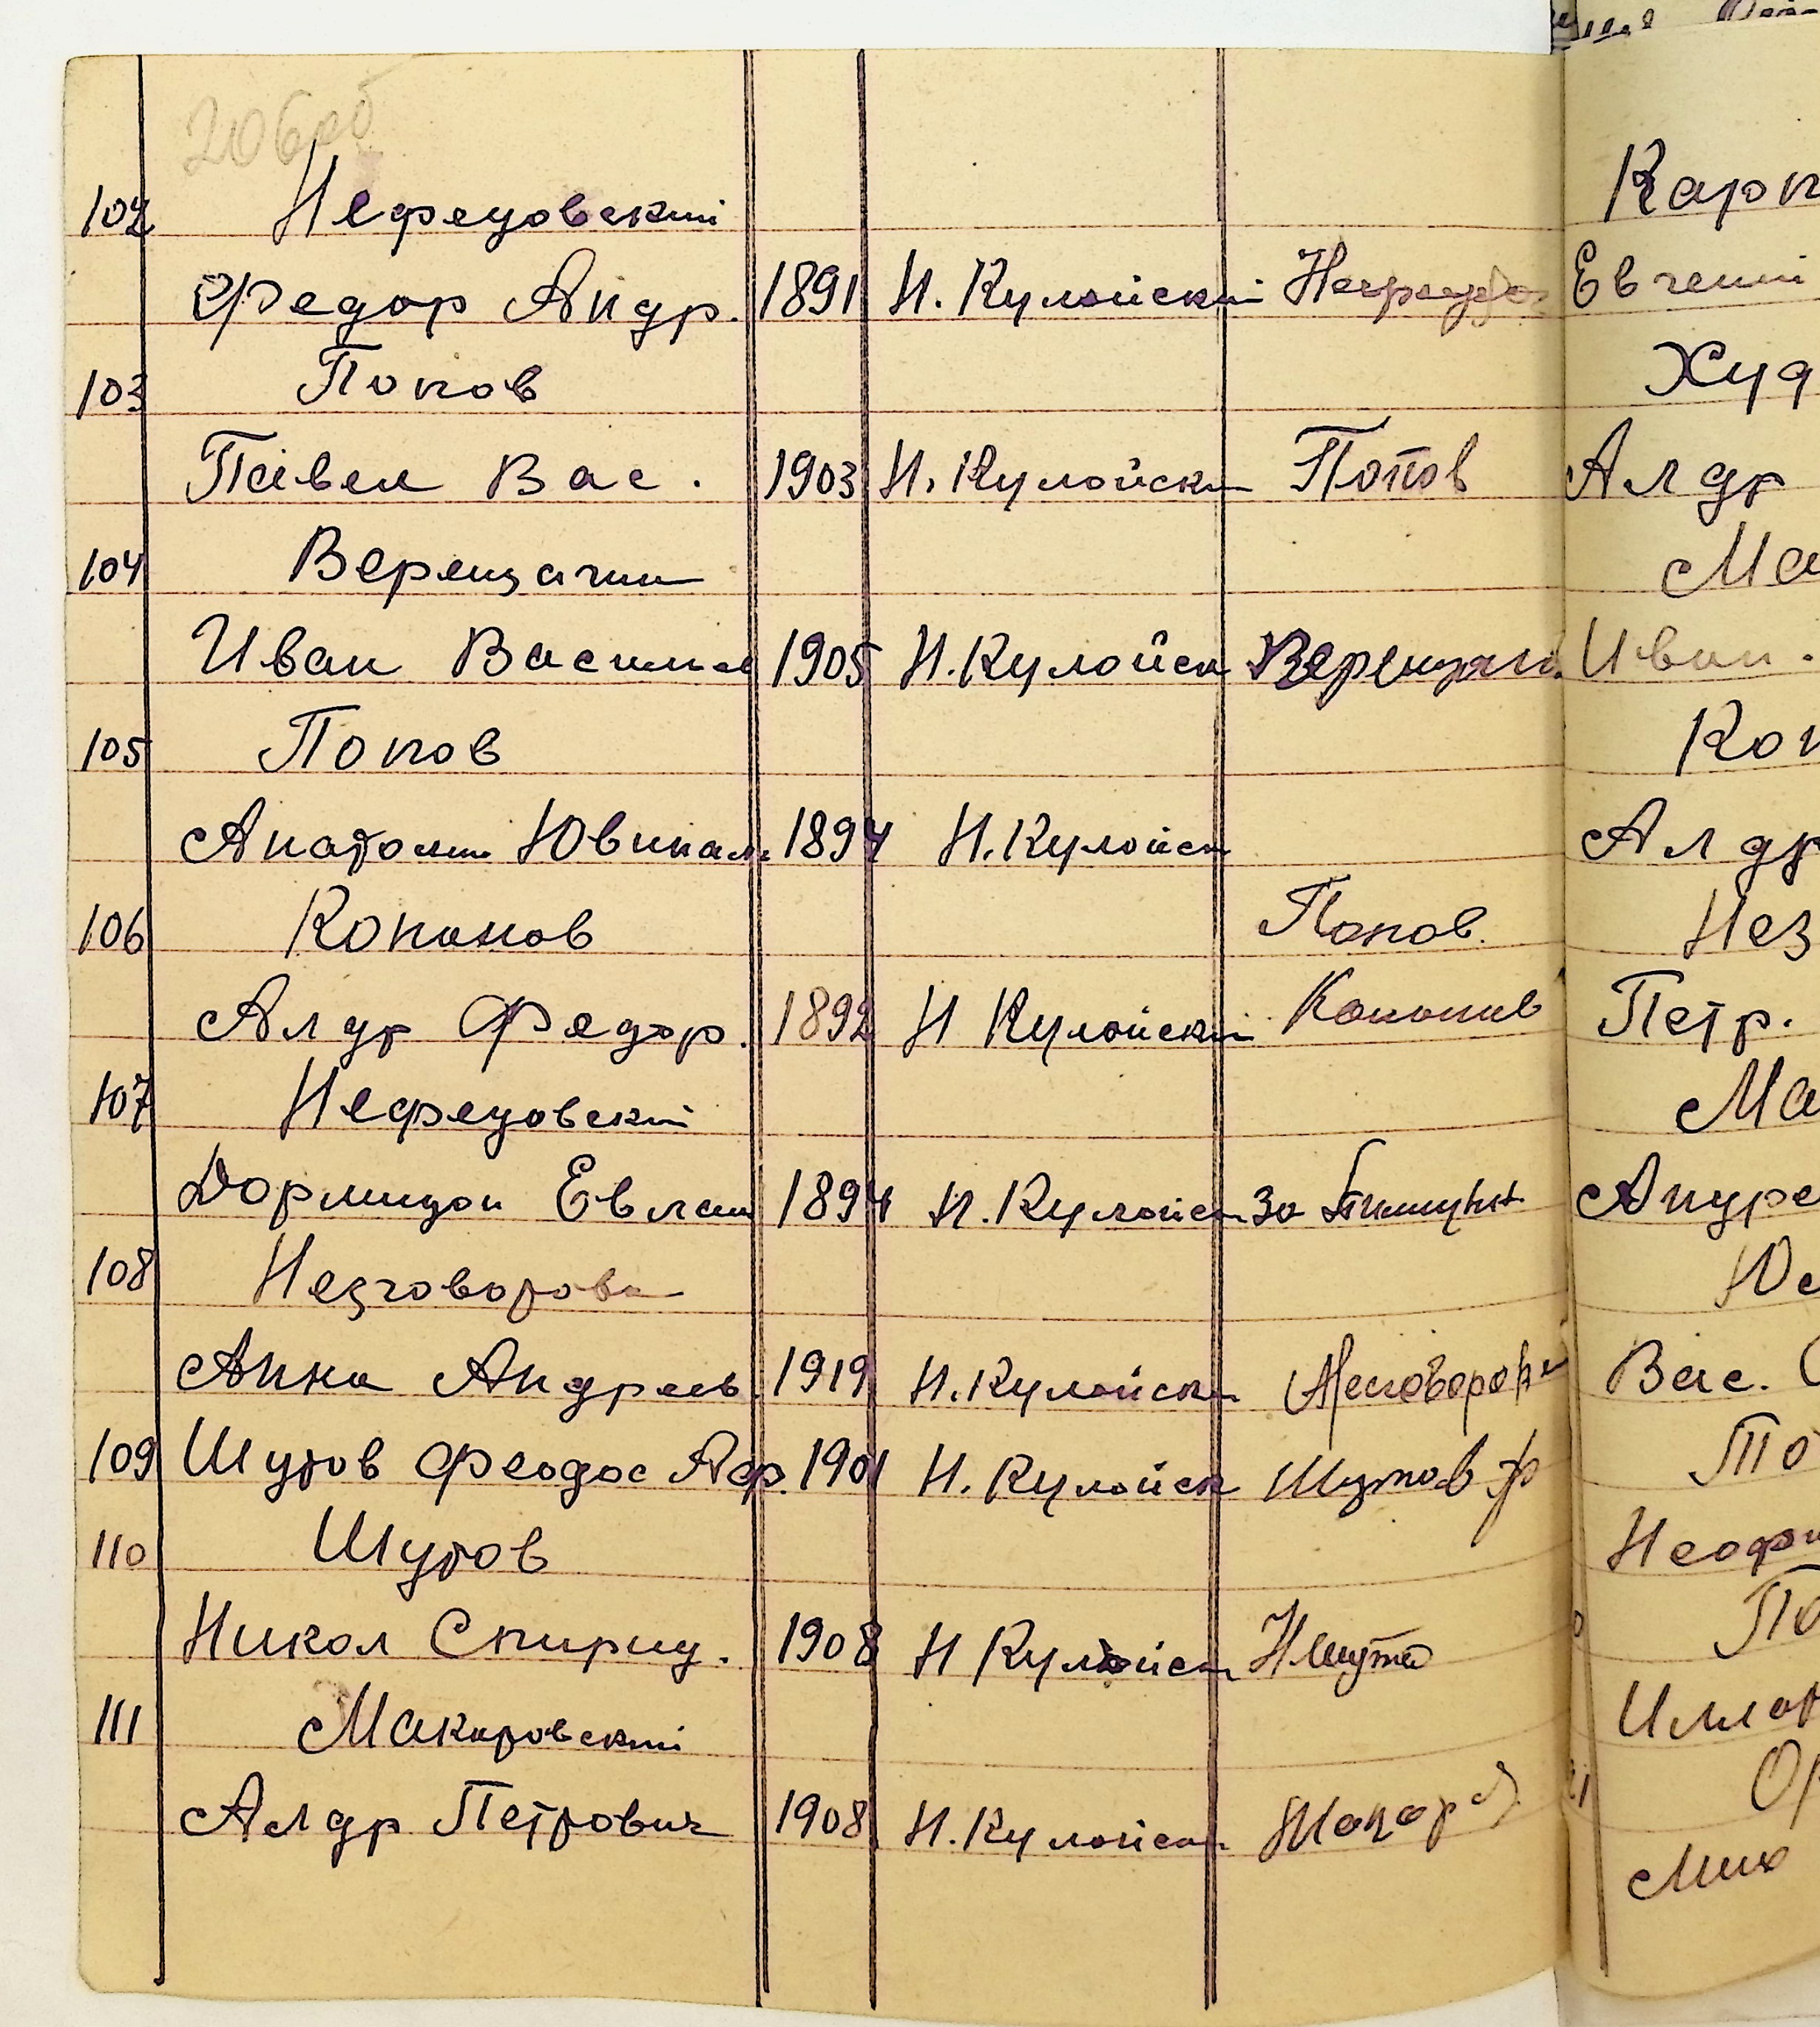 206об
102 Нефедовский
Федор Андр. 1891 Н. Кулойский Нефедо
103 Попов
Павел Вас. 1903 Н. Кулойски Попов
104 Верещагин
Иван Василье 1905 Н. Кулойск Верещаг.
105 Попов
Анатолий Ювинал. 1894 Н. Кулойск
106 Кононов Попов.
Алдр Федор. 1892 Н Кулойский Кононов
107 Нефедовский
Дормидон Евлам 1894 Н. Кулойск за
108 Незговорова
Анна Андреев. 1919 Н. Кулойск Несговоров
109 Шутов Феодос Аф. 1901 Н. Кулойск Шутов Ф
110 Шутов
Никол Спирид. 1908 Н Кулойск НШуто
111 Макаровский
Алдр Петрович 1908 Н. Кулойск Макар
Карп
Евгений
Худ
Алдр
Ма
Иван.
Кон
Алдр
Нез
Петр.
Ма
Андре
Юе
Вас.
То
Неофи
По
Иллар
Ор
Мих